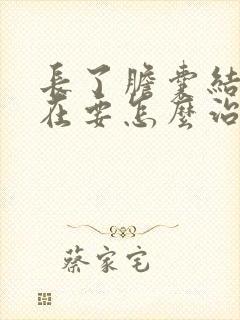 長了膽囊結
在要怎麼治
蔡家宅